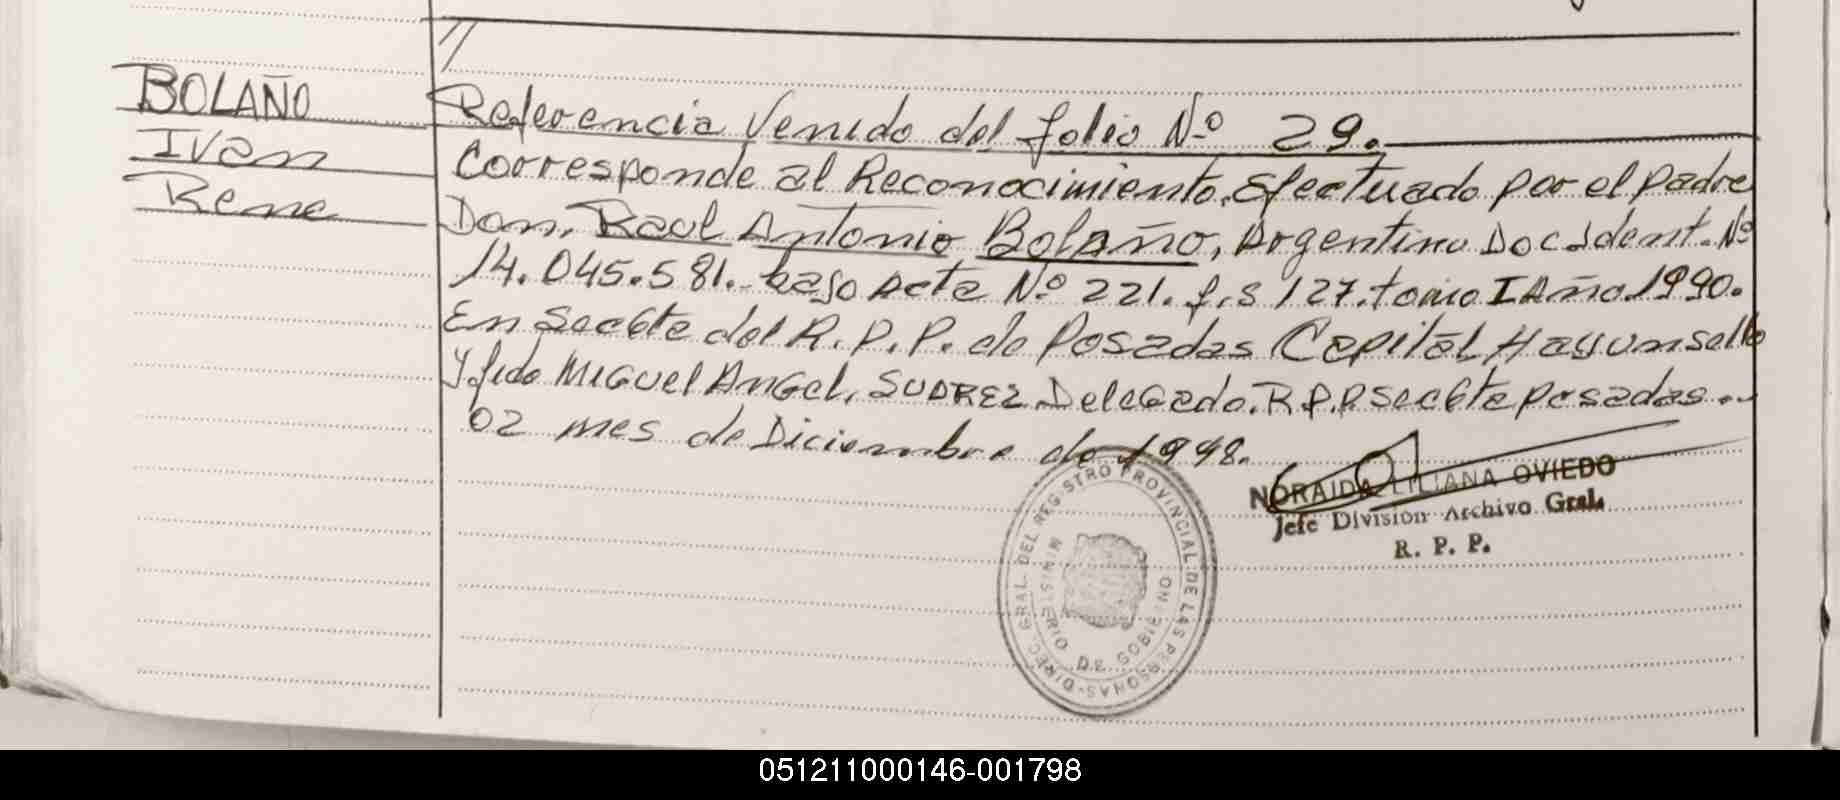 BOLAÑO
Ivan
Rene
Referencia Venido del folio N.o 29.
Corresponde al Reconocimiento. Efectuado por el padre
Don, Raol Antonio Bolaño, Argentino Doc Ident. No
14.045.581.- bajo Acta N.o 221. f.s 127. tomo I Año. 1990.
En Sec 6te del R. P. P. de Posadas Capital, Hay un sello
Y fido Miguel Angel, SUAREZ Delegado. R.P.P Sec 6te posadas..
02 mes de Diciembre de 1998.
NORAIDA LILIANA OVIEDO
Jefe Division Archivo Gral.
R. P. P.
DIREC. GRAL. DEL REGISTRO PROVINCIAL DE LAS PERSONAS
MINISTERIO DE GOBIERNO
051211000146-001798